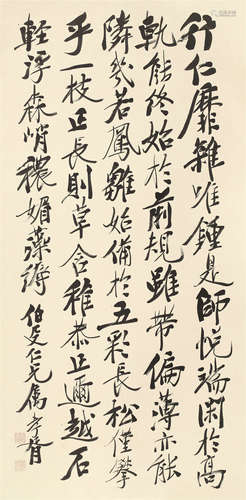 行仁靡雜唯鍾是師悅端閑於高
軌能終始於前規雖帶偏薄亦能
隣幾若鳳雛始備於五彩長松僅攀
乎一枝正長則草含稚恭正邇越石
輕浮森峭穠媚藻縟
伯叟仁兄屬孝胥